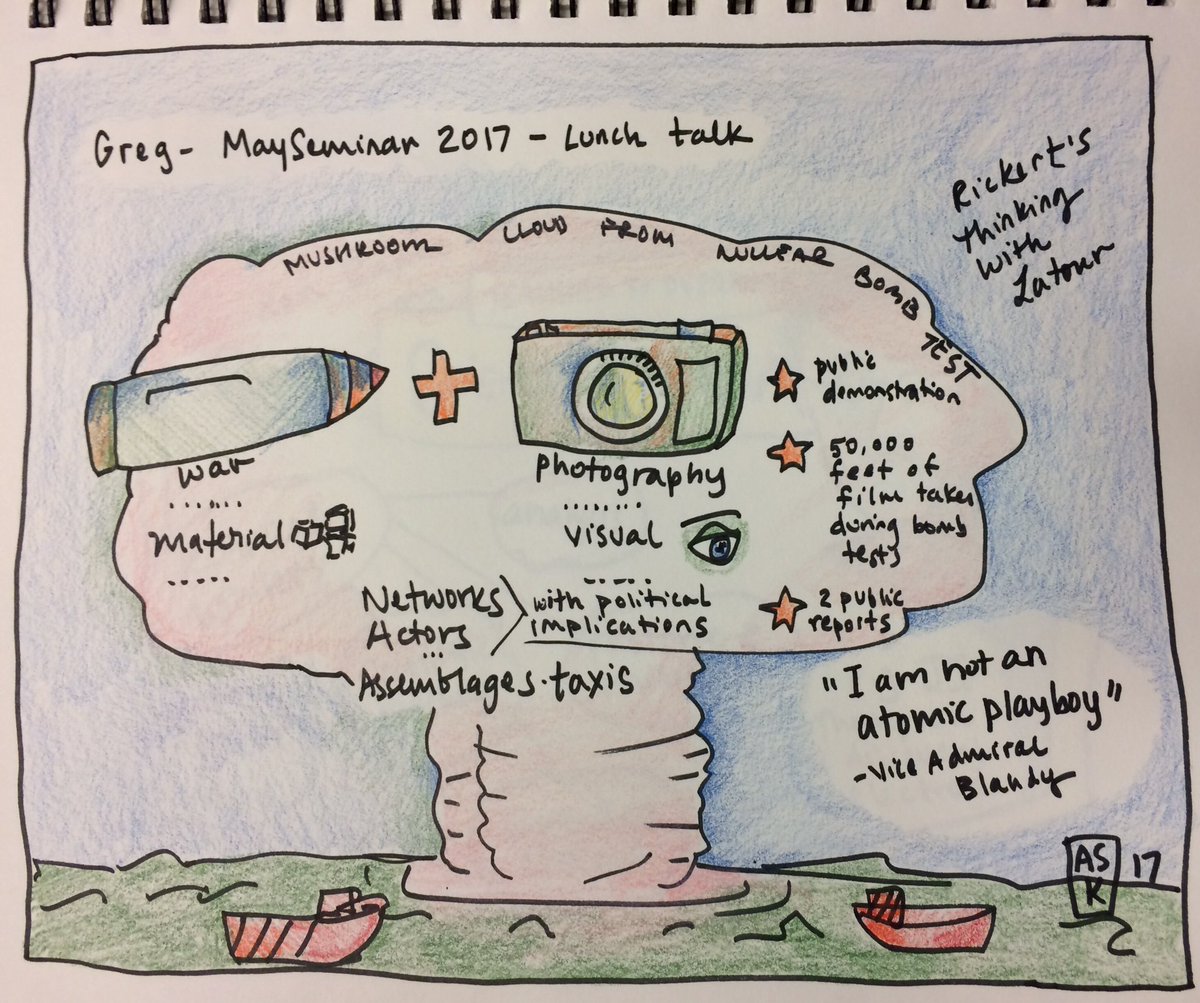 Greg - MaySeminar 2017 - Lunch talk
Rickert's
thinking
with
Latour
MUSHROOM CLOUD FROM NUCLEAR BOMB TEST
war
material
photography
visual
Networks
Actors
with political
implications
Assemblages. taxis
public
demonstration
50,000
feet of
film taken
during bomb
tests
2 public
reports
"I am not an
atomic playboy"
- Vice Admiral
Blandy
ASK 17